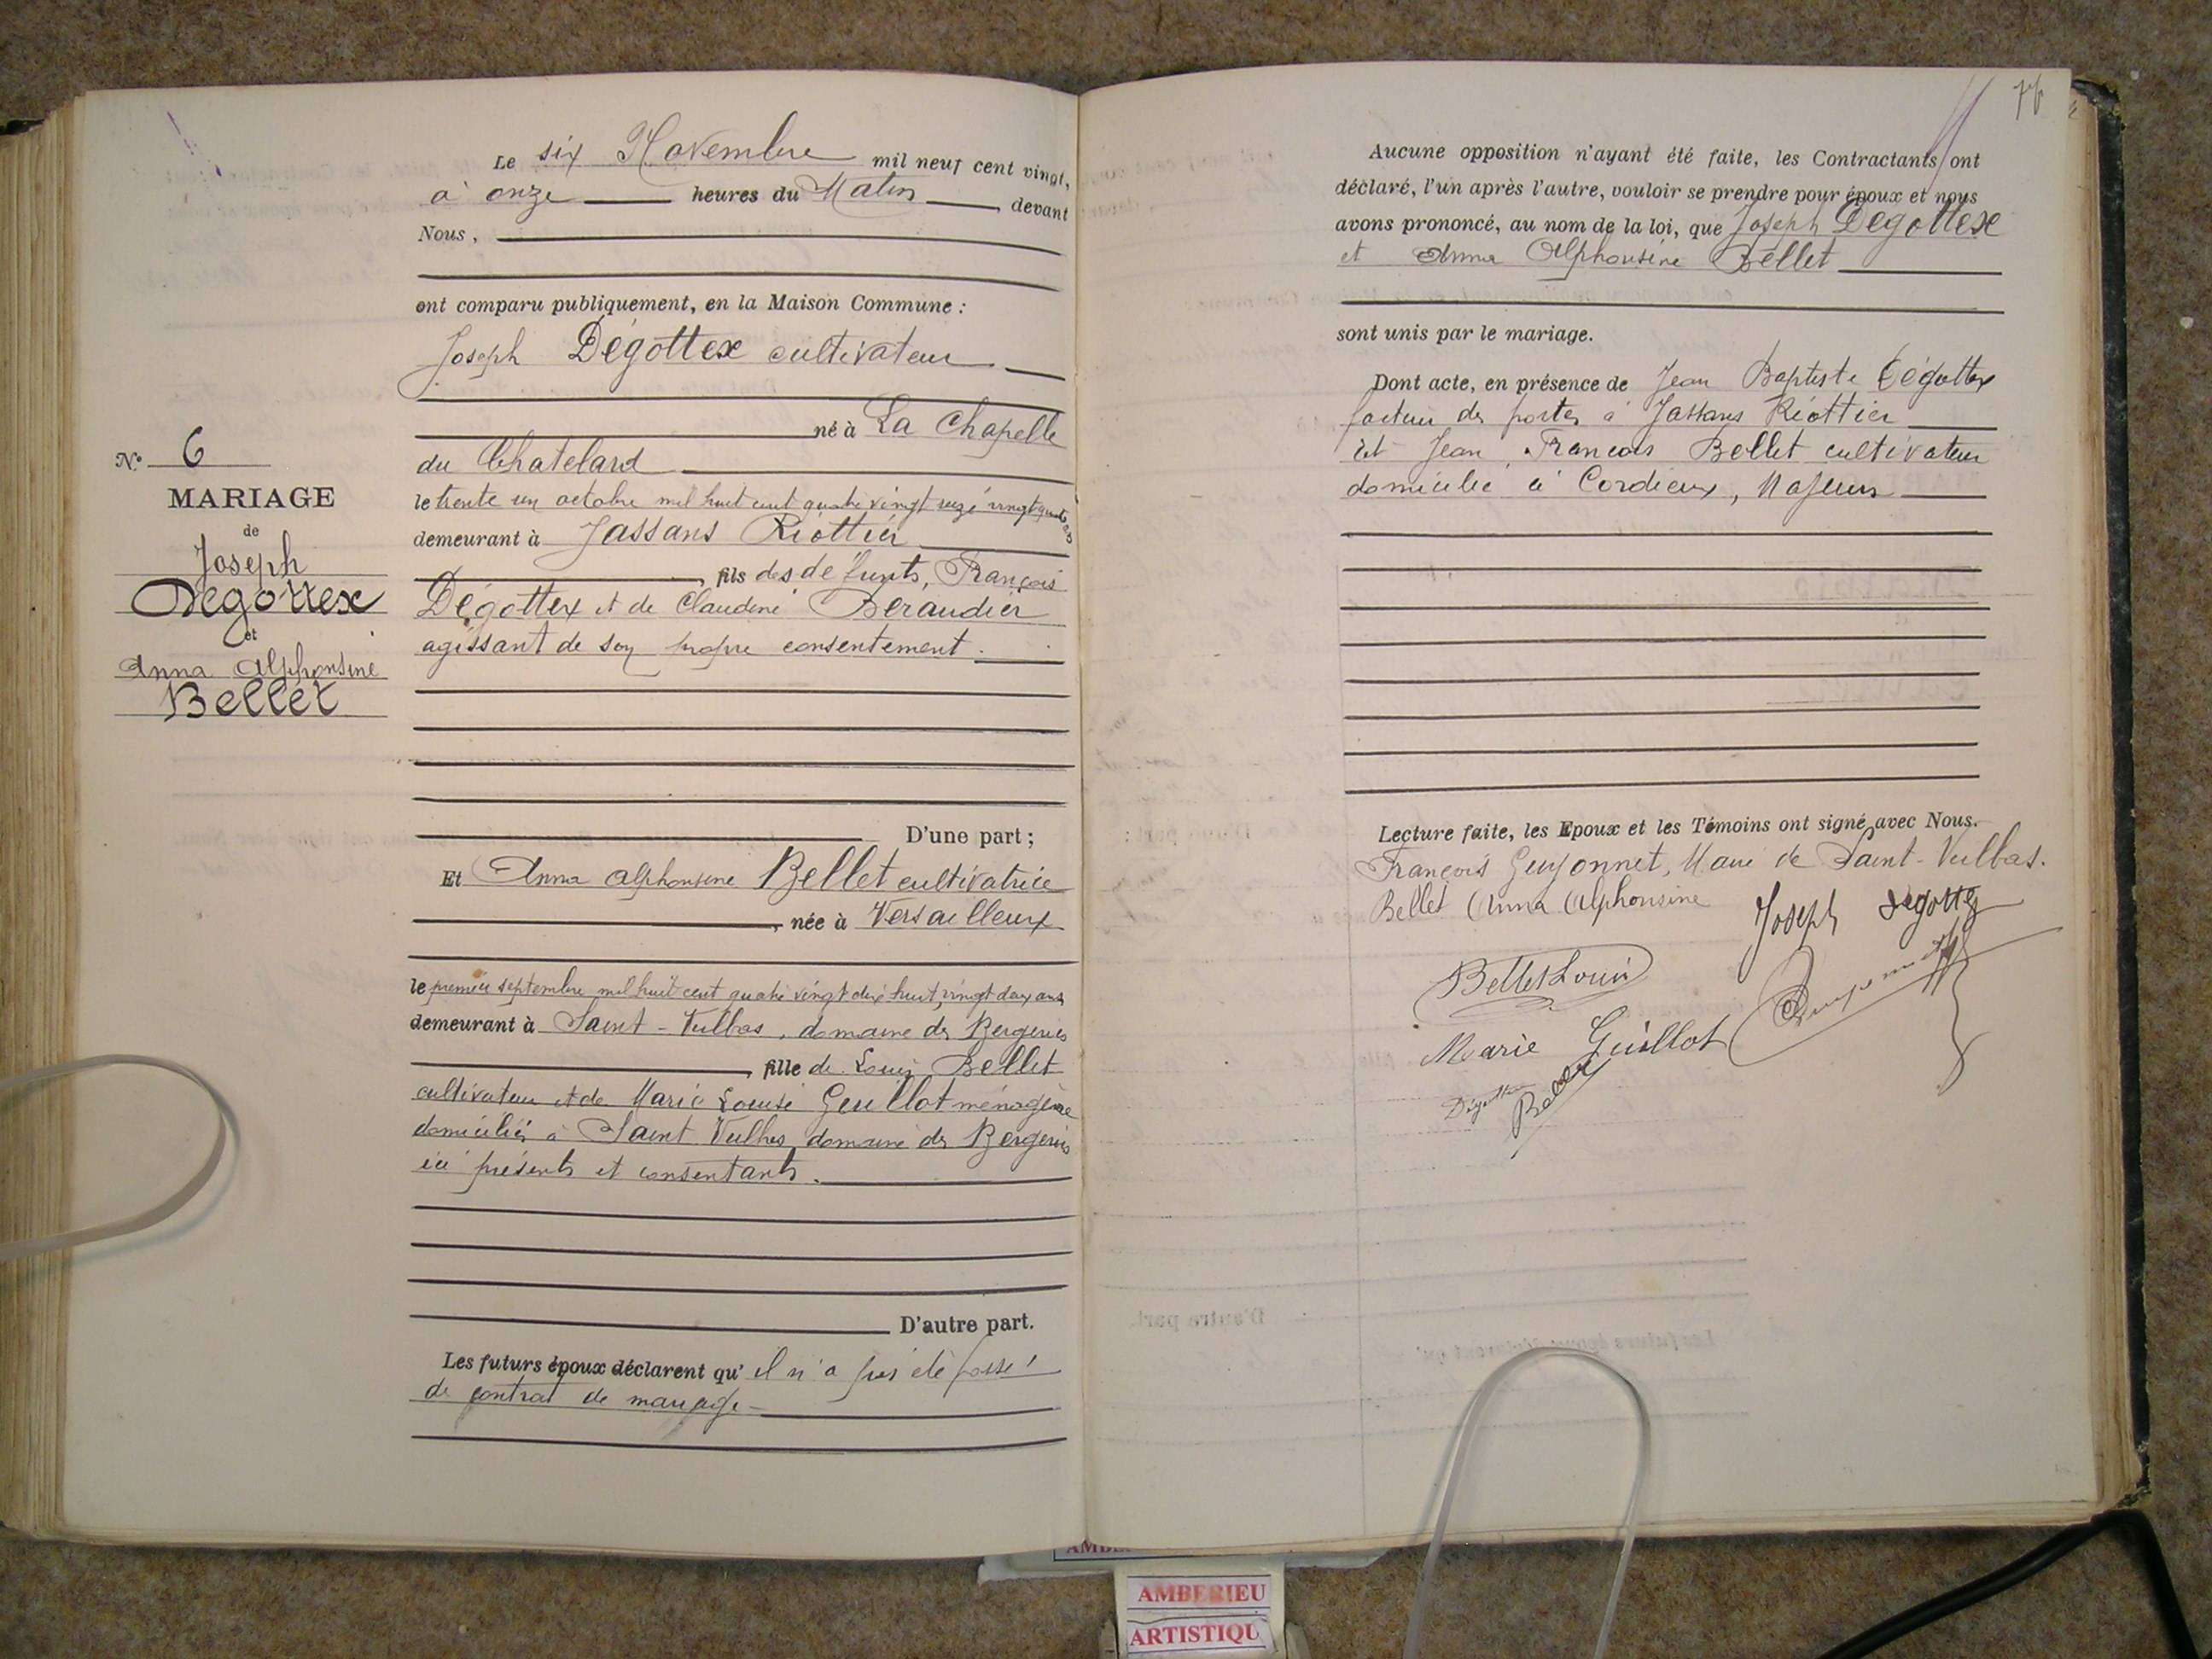 N° 6
MARIAGE
de
Joseph
Dégottex
et
Anna Alphonsine
Bellet
Le six Novembre mil neuf cent vingt,
à onze heures du Matin, devant
Nous,
ont comparu publiquement, en la Maison Commune :
Joseph Dégottex cultivateur
né à La Chapelle
du Chatelard
le trente un octobre mil huit cent quatre vingt seize vingt quatre ans
demeurant à Jassans Riottier
, fils des défunts, François
Dégottex et de Claudine Beraudier
agissant de son propre consentement.
D'une part ;
Et Anna Alphonsine Bellet cultivatrice
, née à Versailleux
le premier septembre mil huit cent quatre vingt dix huit, vingt deux ans
demeurant à Saint-Vulbas, domaine des Bergeries
, fille de Louis Bellet
cultivateur et de Marie Louise Guillot ménagère
domiciliés à Saint Vulbas, domaine des Bergeries
ici présents et consentants.
D'autre part.
Les futurs époux déclarent qu'il n'a pas été passé
de contrat de mariage
76
Aucune opposition n'ayant été faite, les Contractants ont
déclaré, l'un après l'autre, vouloir se prendre pour époux et nous
avons prononcé, au nom de la loi, que Joseph Dégottex
et Anna Alphonsine Bellet
sont unis par le mariage.
Dont acte, en présence de Jean Baptiste Dégottex
facteur des postes à Jassans Riottier
Et Jean François Bellet cultivateur
domicilié à Cordieux, Majeurs
Lecture faite, les Epoux et les Témoins ont signé avec Nous.
François Guyonnet, Maire de Saint-Vulbas.
Bellet Anna Alphonsine Joseph Degottex
Bellet Louis
Marie Guillot
Dégottex
Bellet
AMBERIEU
ARTISTIQU